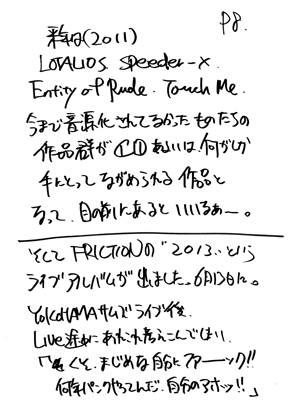 P8.
(2011)
LOTALIOS. Speeder-X.
Entity of Rude. Touch Me.
今まで音源化されてなかったものたちの
作品群がCDあるいは何かしら
手にとってながめられる作品と
なって、目の前にあるといいなぁー。
そしてFRICTIONの"2013"という
ライブアルバムが出ました。6月12日に。
YOKOHAMAサムズライブ後、
「くそ、まじめな自分にファーック!!
何年パンクやってんだ、自分のアホッ!!」